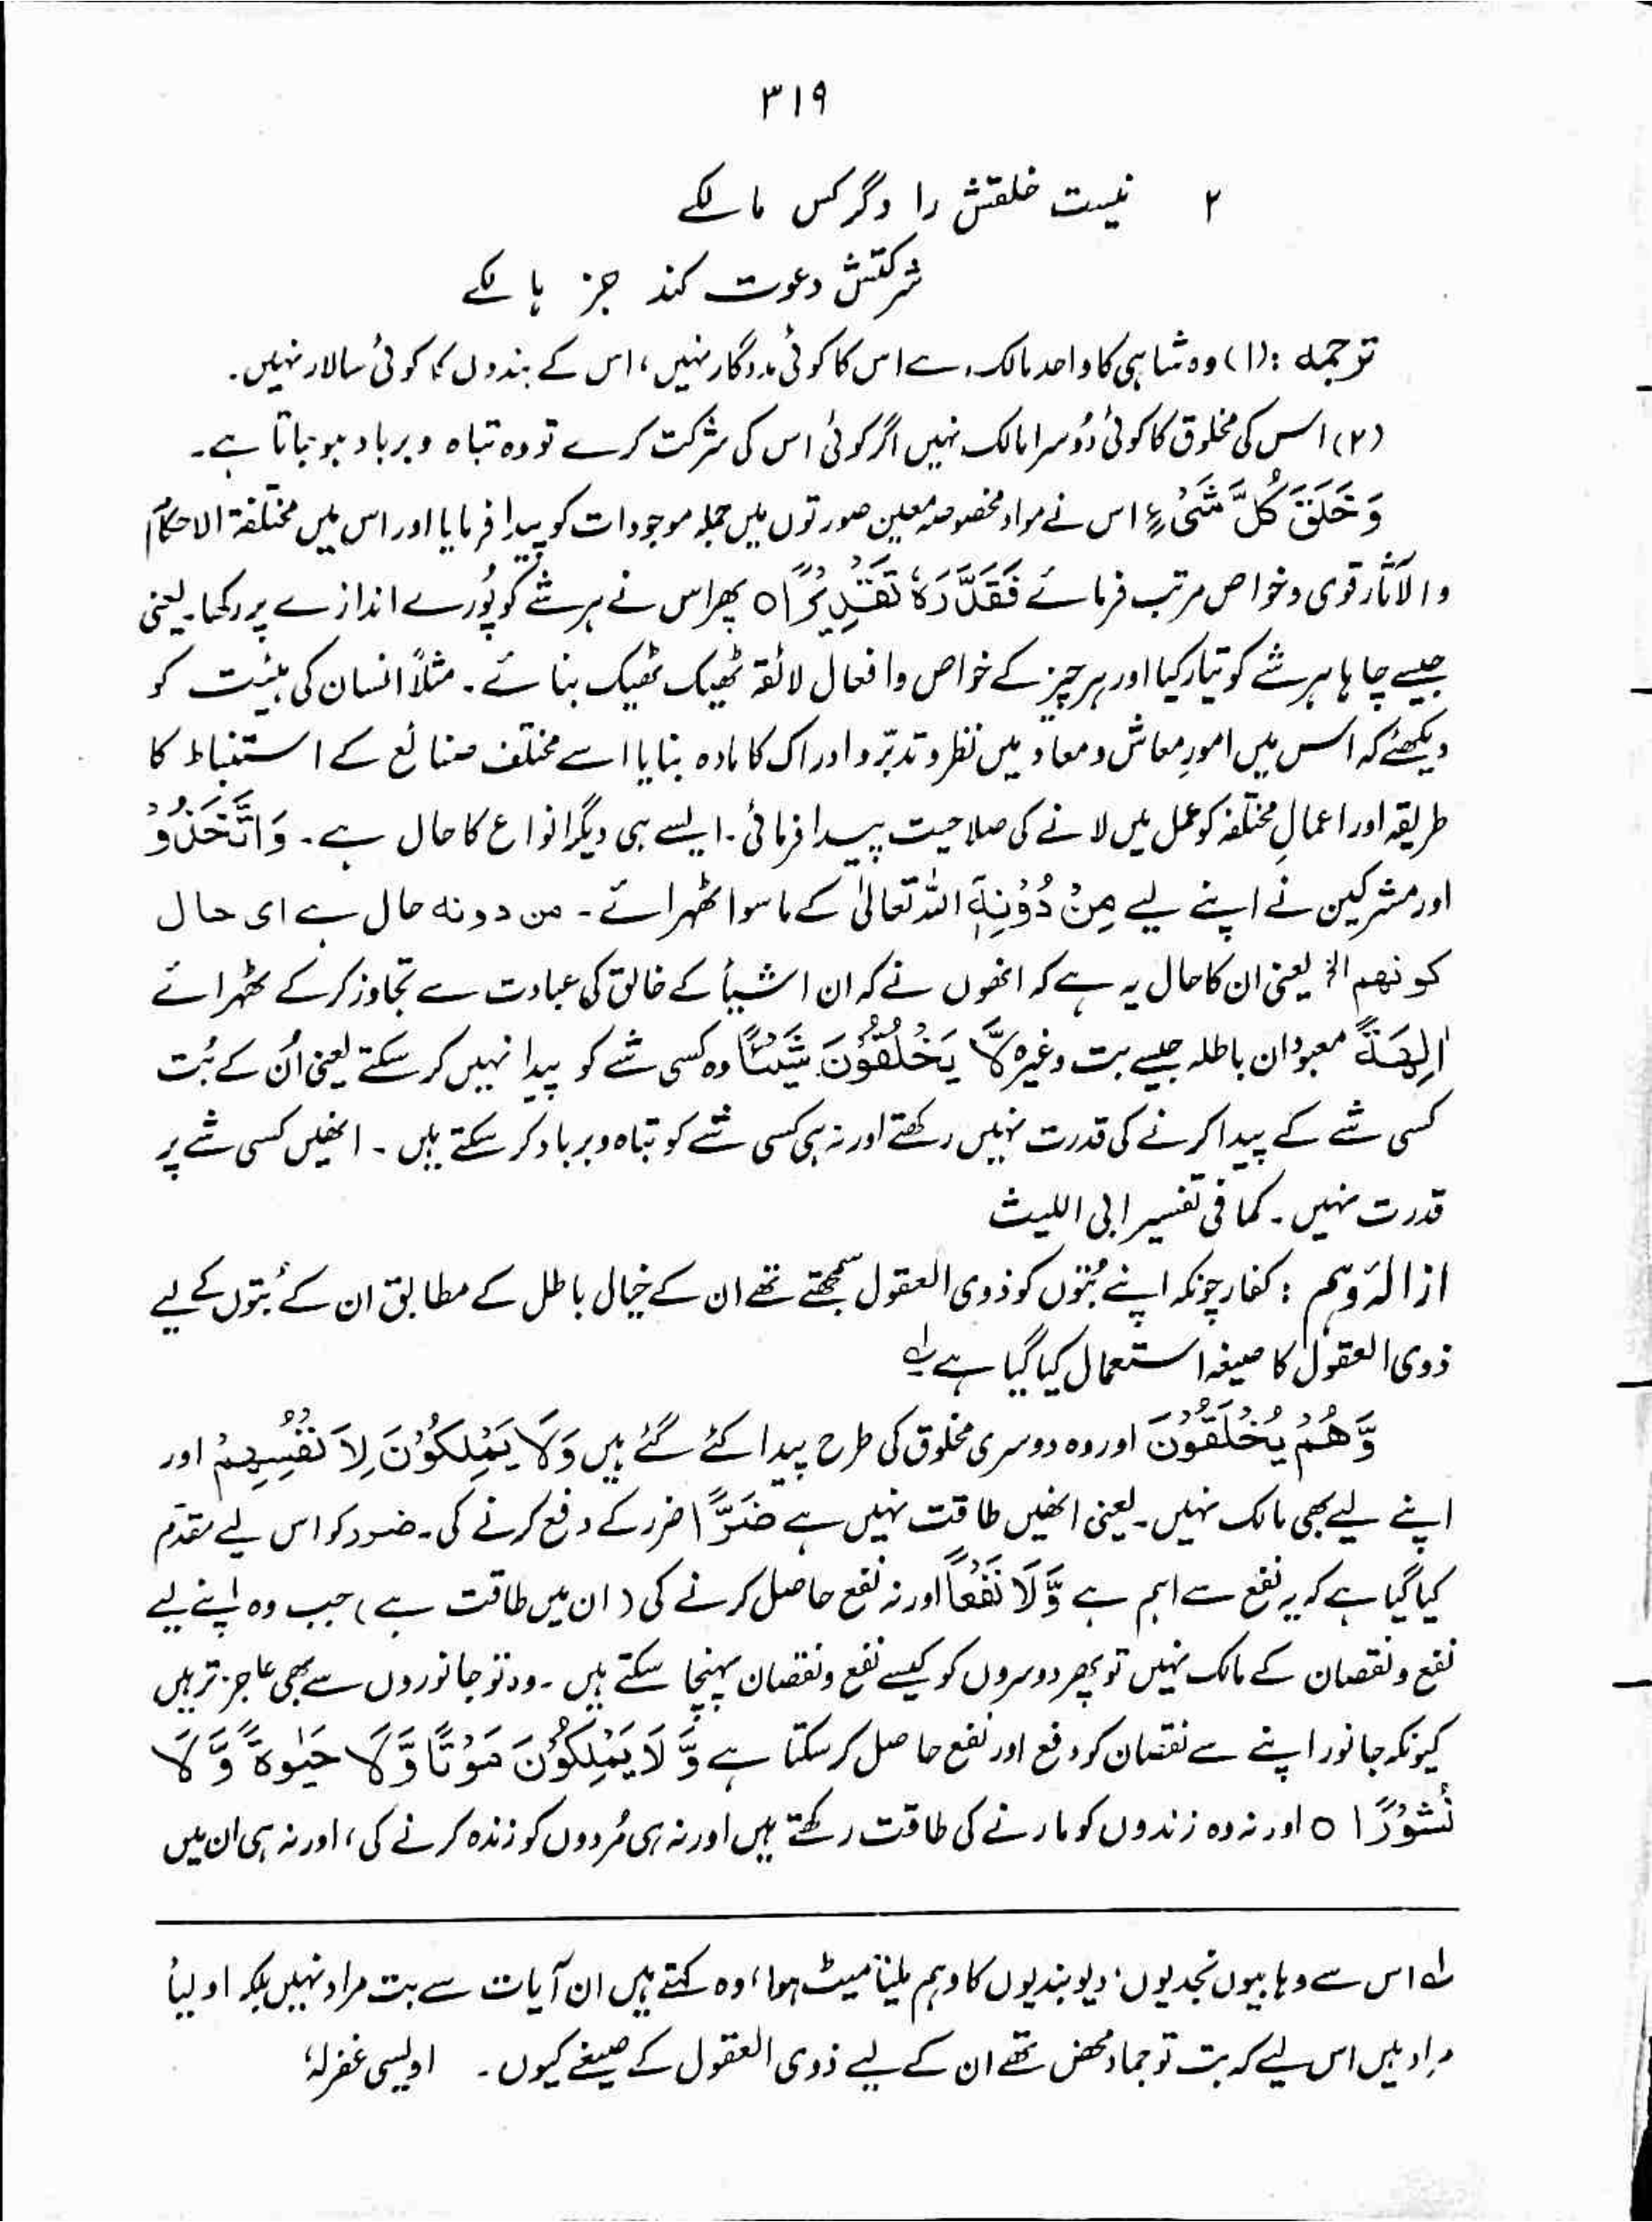 ۳۱۹
۲ نیست خلقتش را دگر کس مالکے
شرکتش دعوت کند جز ہالکے
ترجمہ : (۱) وہ شاہی کا واحد مالک ہے اس کا کوئی مددگار نہیں، اس کے بندوں کا کوئی سالار نہیں۔
(۲) اس کی مخلوق کا کوئی دُوسرا مالک نہیں اگر کوئی اس کی شرکت کرے تو وہ تباہ و برباد ہو جاتا ہے۔
وَخَلَقَ كُلَّ شَیْءٍ اس نے مواد مخصوصہ معین صورتوں میں جملہ موجودات کو پیدا فرمایا اور اس میں مختلفۃ الاحکام
والآثار قوی و خواص مرتب فرمائے فَقَدَّرَهٗ تَقْدِیْرًا ○ پھر اس نے ہر شے کو پُورے اندازے پر رکھا۔ یعنی
جیسے چاہا ہر شے کو تیار کیا اور ہر چیز کے خواص وافعال لائقہ ٹھیک ٹھیک بنائے۔ مثلاً انسان کی ہیئت کو
دیکھئے کہ اس میں امورِ معاش و معاد میں نظر و تدبّر و ادراک کا مادہ بنایا اسے مختلف صنائع کے استنباط کا
طریقہ اور اعمالِ مختلفہ کو عمل میں لانے کی صلاحیت پیدا فرمائی۔ ایسے ہی دیگر انواع کا حال ہے۔ وَاتَّخَذُوْ
اور مشرکین نے اپنے لیے مِنْ دُوْنِهٖٓ اللہ تعالیٰ کے ماسوا ٹھہرائے۔ من دونہ حال ہے ای حال
کونھم الخ یعنی ان کا حال یہ ہے کہ انھوں نے کہ ان اشیأ کے خالق کی عبادت سے تجاوز کر کے ٹھہرائے
اٰلِهَةً معبودان باطلہ جیسے بت وغیرہ لَّا یَخْلُقُوْنَ شَیْئًا وہ کسی شے کو پیدا نہیں کر سکتے یعنی اُن کے بُت
کسی شے کے پیدا کرنے کی قدرت نہیں رکھتے اور نہ ہی کسی شے کو تباہ و برباد کر سکتے ہیں۔ انھیں کسی شے پر
قدرت نہیں۔ کما فی تفسیر ابی اللیث
ازالۂ وہم : کفار چونکہ اپنے بُتوں کو ذوی العقول سمجھتے تھے ان کے خیالِ باطل کے مطابق ان کے بُتوں کے لیے
ذوی العقول کا صیغہ استعمال کیا گیا ہے؂۱
وَّهُمْ یُخْلَقُوْنَ اور وہ دوسری مخلوق کی طرح پیدا کئے گئے ہیں وَلَا یَمْلِكُوْنَ لِاَنْفُسِهِمْ اور
اپنے لیے بھی مالک نہیں۔ یعنی انھیں طاقت نہیں ہے ضَرًّا ضرر کے دفع کرنے کی۔ ضرر کو اس لیے مقدّم
کیا گیا ہے کہ یہ نفع سے اہم ہے وَّلَا نَفْعًا اور نہ نفع حاصل کرنے کی (ان میں طاقت ہے) جب وہ اپنے لیے
نفع و نقصان کے مالک نہیں تو پھر دوسروں کو کیسے نفع و نقصان پہنچا سکتے ہیں۔ وہ تو جانوروں سے بھی عاجز تر ہیں
کیونکہ جانور اپنے سے نقصان کو دفع اور نفع حاصل کر سکتا ہے وَّلَا یَمْلِكُوْنَ مَوْتًا وَّلَا حَیٰوةً وَّلَا
نُشُوْرًا ○ اور نہ وہ زندوں کو مارنے کی طاقت رکھتے ہیں اور نہ ہی مُردوں کو زندہ کرنے کی، اور نہ ہی ان میں
؂۱ اس سے وہابیوں نجدیوں، دیوبندیوں کا وہم ملیامیٹ ہوا، وہ کہتے ہیں ان آیات سے بت مراد نہیں بلکہ اولیأ
مراد ہیں اس لیے کہ بت تو جماد محض تھے ان کے لیے ذوی العقول کے صیغے کیوں۔ اویسی غفرلہٗ